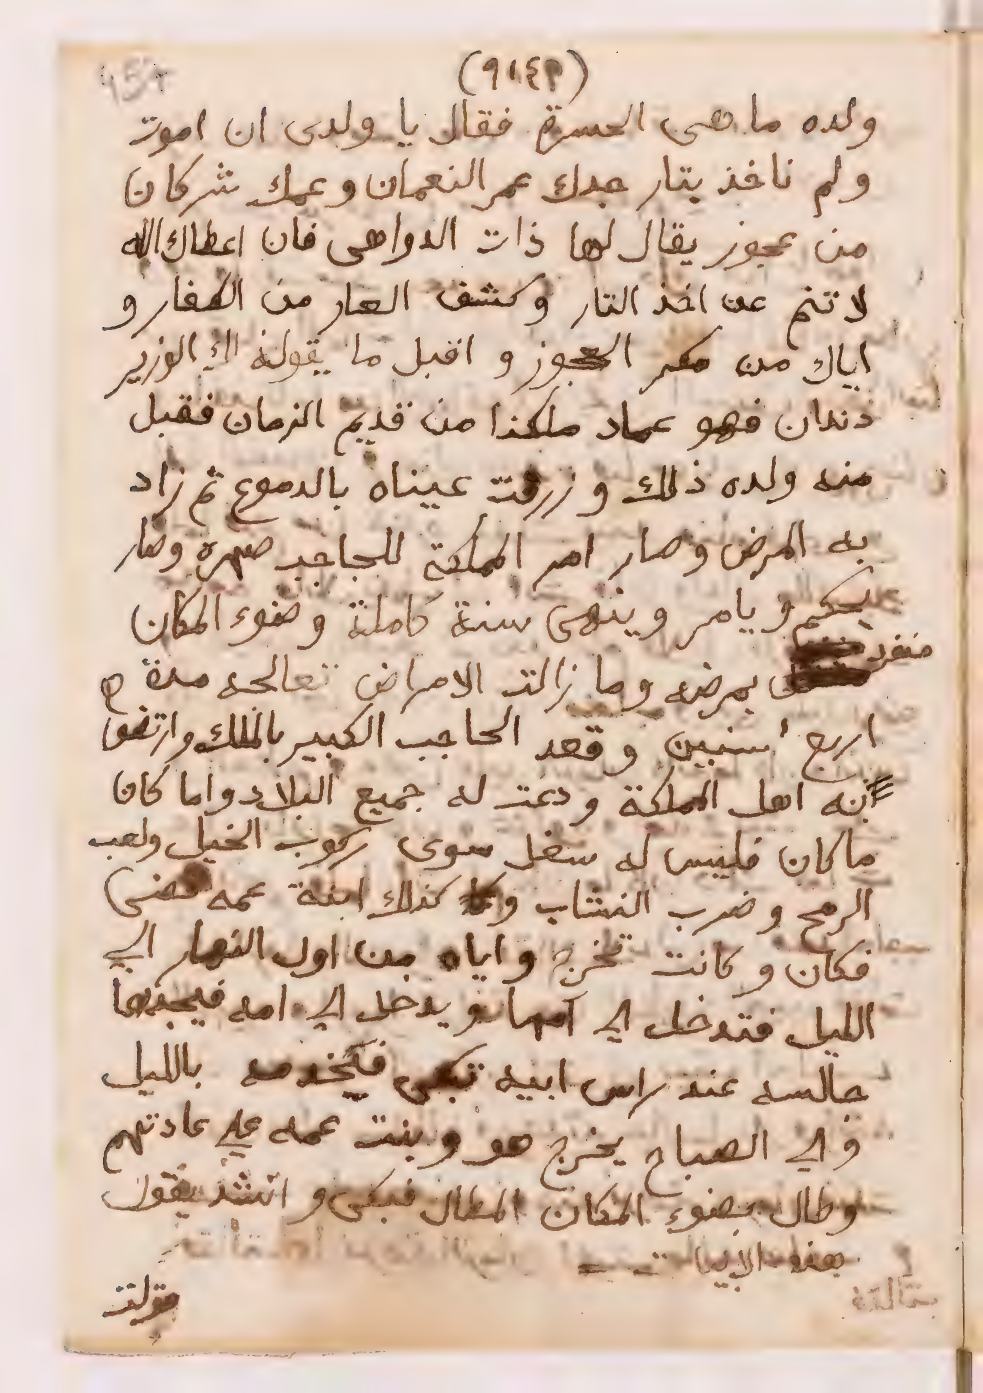 ولده ما هى الحسرة فقال يا ولدى ان اموت
ولم ناخذ بتار جدك عمر النعمان وعمك شركان
من عجوز يقال لها ذات الدواهى فان اعطاك الله
لا تنم عن اخذ التار وكشف العار من الكفار و
اياك من مكر العجوز و اقبل ما يقوله لك الوزير
دندان فهو عماد ملكنا من قديم الزمان فقبل
منه ولده ذلك و زرفت عيناه بالدموع ثم زاد
به المرض وصار امر المملكة للحاجب صهره وصار
يحكم و يامر و ينهى سنة كاملة وضوء المكان
منفرد
بمرضه وما زالت الامراض تعالجه مدة
اربع سنين وقعد الحاجب الكبير بالملك وارتضوا
به اهل المملكة و دعت له جميع البلاد واما كان
ماكان فليس له سغل سوى ركوب الخيل ولعب
الرمح و ضرب النشاب و كذلك ابنة عمه قضى
فكان و كانت تخرج و اياه من اول النهار الي
الليل فتدخل الي امها و يدخل الي امه فيجدها
جالسه عند راس ابيه تبكى فيخدمه بالليل
و الي الصباح يخرج هو و بنت عمه علي عادتهم
وطال بضوء المكان المطال فبكى و انشد يقول
هذه الابيات